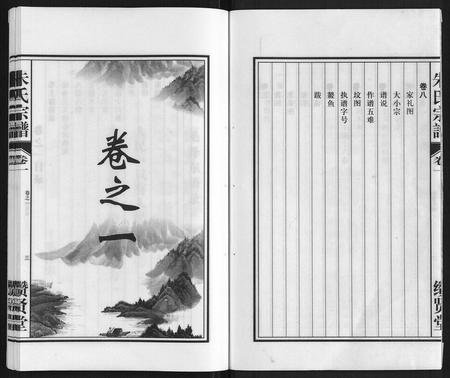 朱氏宗譜
卷一
卷八
家礼图
大小宗
谱说
作谱五难
坟图
执谱字号
鳌鱼
跋
堂
卷之一
朱氏宗譜
卷一
卷之一
三
缵贤堂